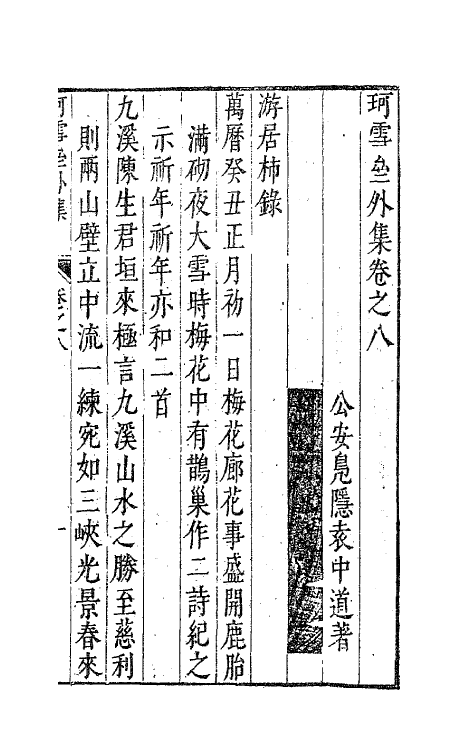 珂雪㘴外集卷之八
公安鳧隱袁中道著
游居柿錄
萬曆癸丑正月初一日梅花廊花事盛開鹿胎
滿砌夜大雪時梅花中有鵲巢作二詩紀之
示祈年祈年亦和二首
九溪陳生君垣來極言九溪山水之勝至慈利
則兩山壁立中流一練宛如三峽光景春來
珂雪㘴外集
卷之八
一